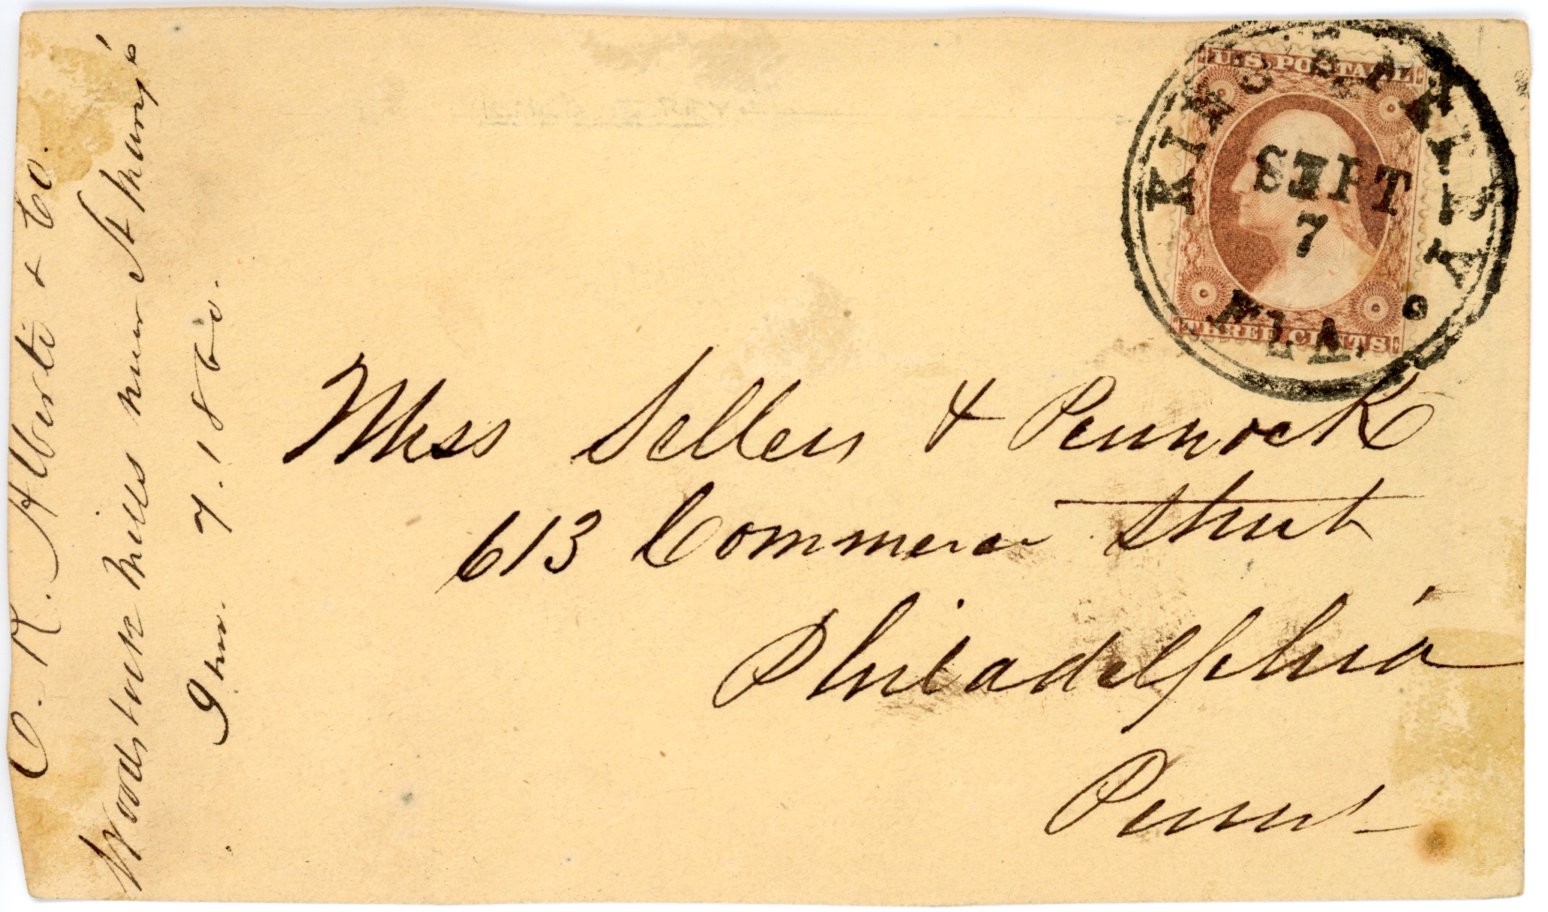 E. R. Alberti & Co.
Woodstock Mills near St Mary's
9 mo. 7. 1860.
U.S. POSTAGE
THREE CENTS
KING'S FERRY
SEPT
7
FLA.
Mess Sellers & Pennock
613 Commerce Street
Philadelphia
Penna